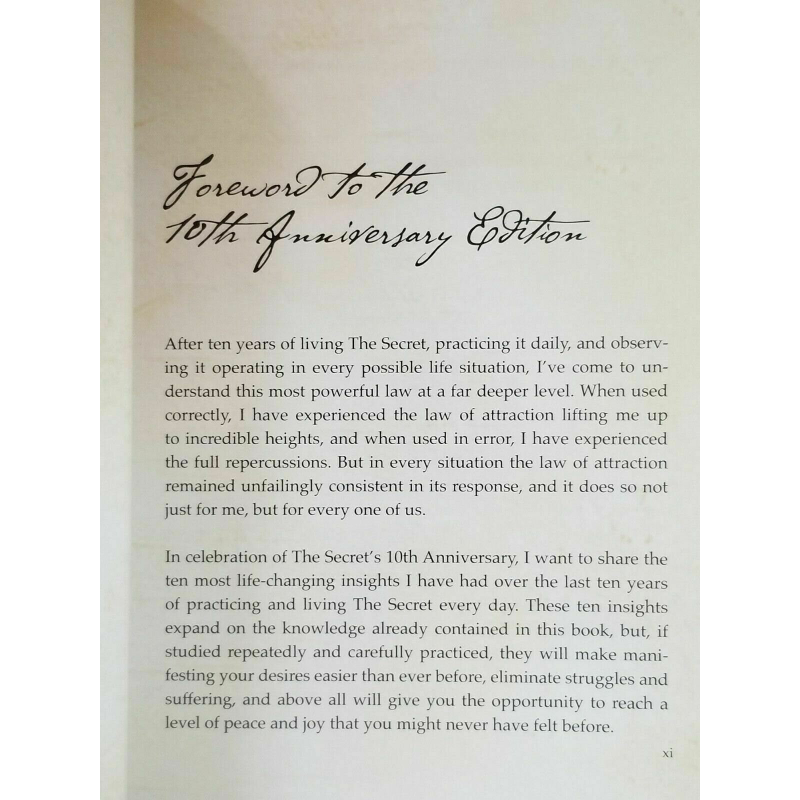 Foreword to the
10th Anniversary Edition
After ten years of living The Secret, practicing it daily, and observ-
ing it operating in every possible life situation, I've come to un-
derstand this most powerful law at a far deeper level. When used
correctly, I have experienced the law of attraction lifting me up
to incredible heights, and when used in error, I have experienced
the full repercussions. But in every situation the law of attraction
remained unfailingly consistent in its response, and it does so not
just for me, but for every one of us.
In celebration of The Secret's 10th Anniversary, I want to share the
ten most life-changing insights I have had over the last ten years
of practicing and living The Secret every day. These ten insights
expand on the knowledge already contained in this book, but, if
studied repeatedly and carefully practiced, they will make mani-
festing your desires easier than ever before, eliminate struggles and
suffering, and above all will give you the opportunity to reach a
level of peace and joy that you might never have felt before.
xi